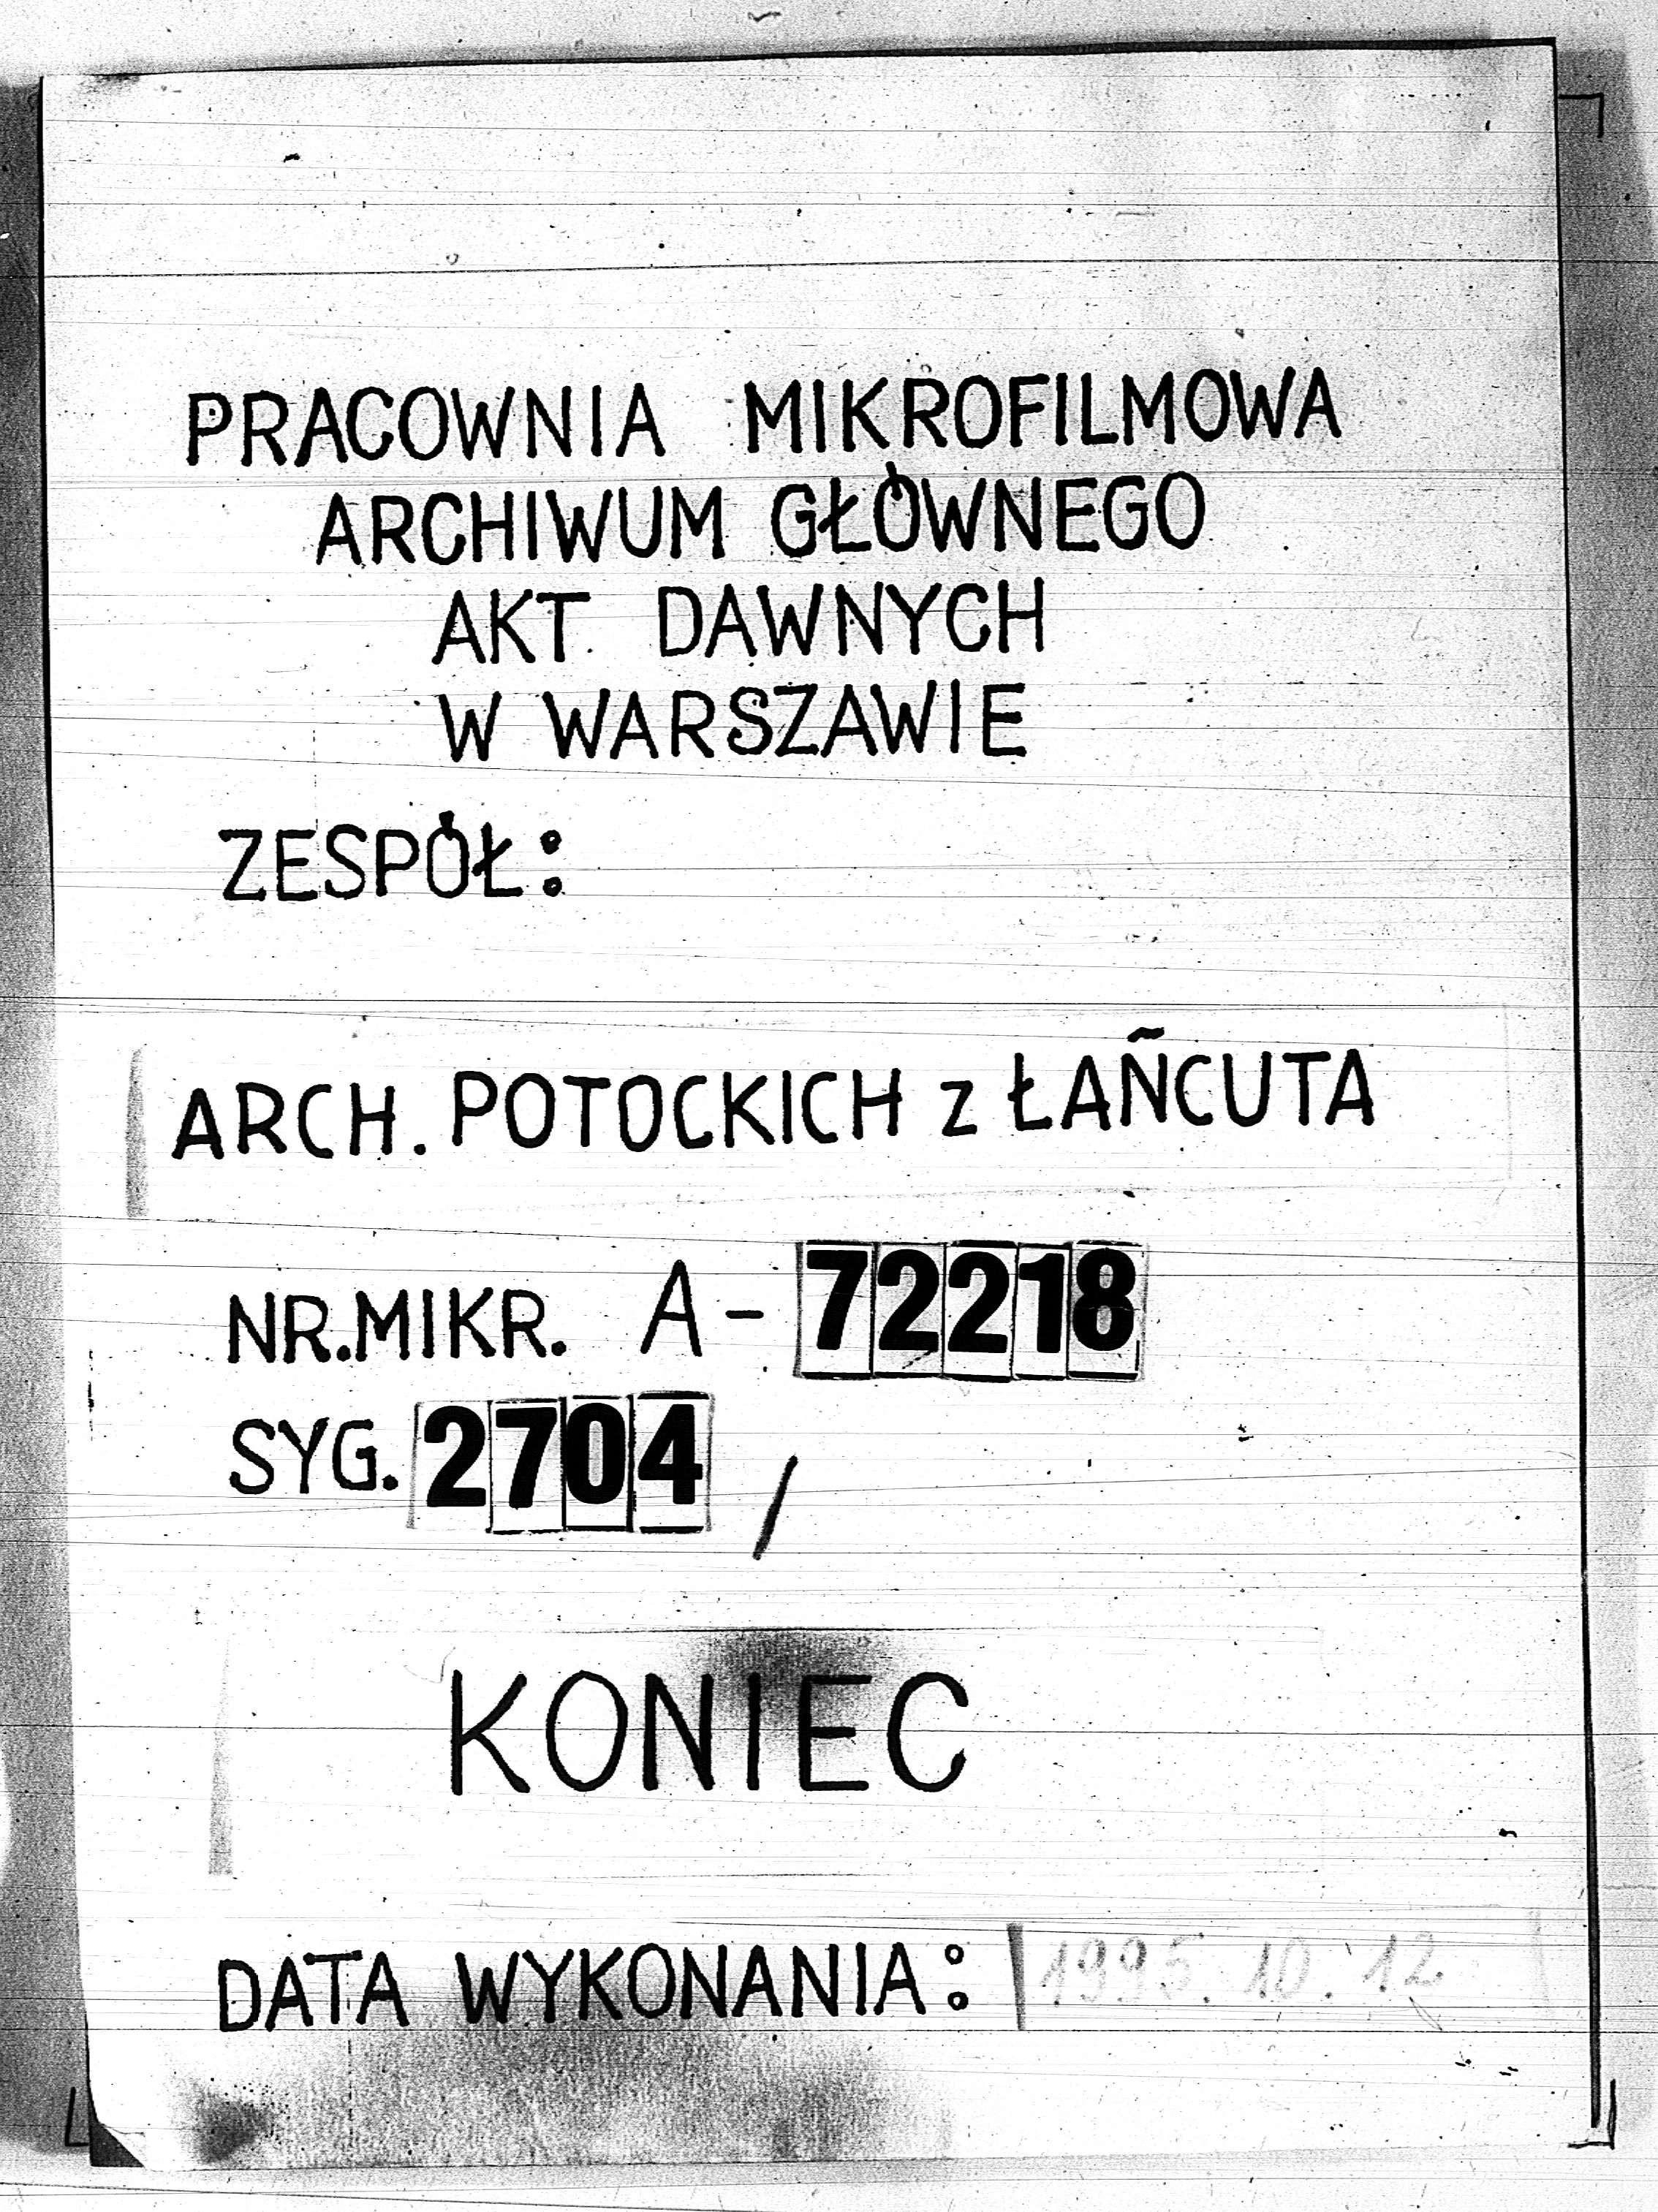 PRACOWNIA MIKROFILMOWA
ARCHIWUM GŁÓWNEGO
AKT DAWNYCH
W WARSZAWIE
ZESPÓŁ:
ARCH. POTOCKICH z ŁAŃCUTA
NR. MIKR. A-72218
SYG. 2704 /
KONIEC
DATA WYKONANIA: 1995. 10. 12